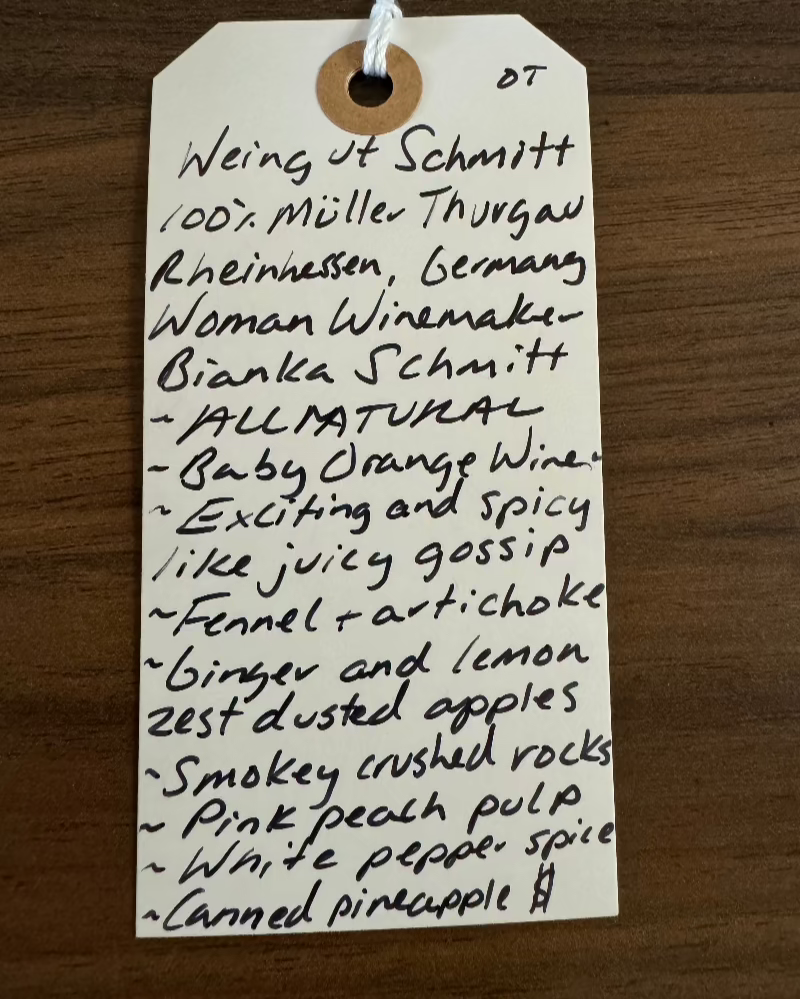 OT
Weingut Schmitt
100% Müller Thurgau
Rheinhessen, Germany
Woman Winemaker
Bianka Schmitt
~ ALL NATURAL
~ Baby Orange Wine.
~ Exciting and spicy
like juicy gossip
~ Fennel + artichoke
~ Ginger and lemon
zest dusted apples
~ Smokey crushed rocks
~ Pink peach pulp
~ White pepper spice
~ Canned pineapple $